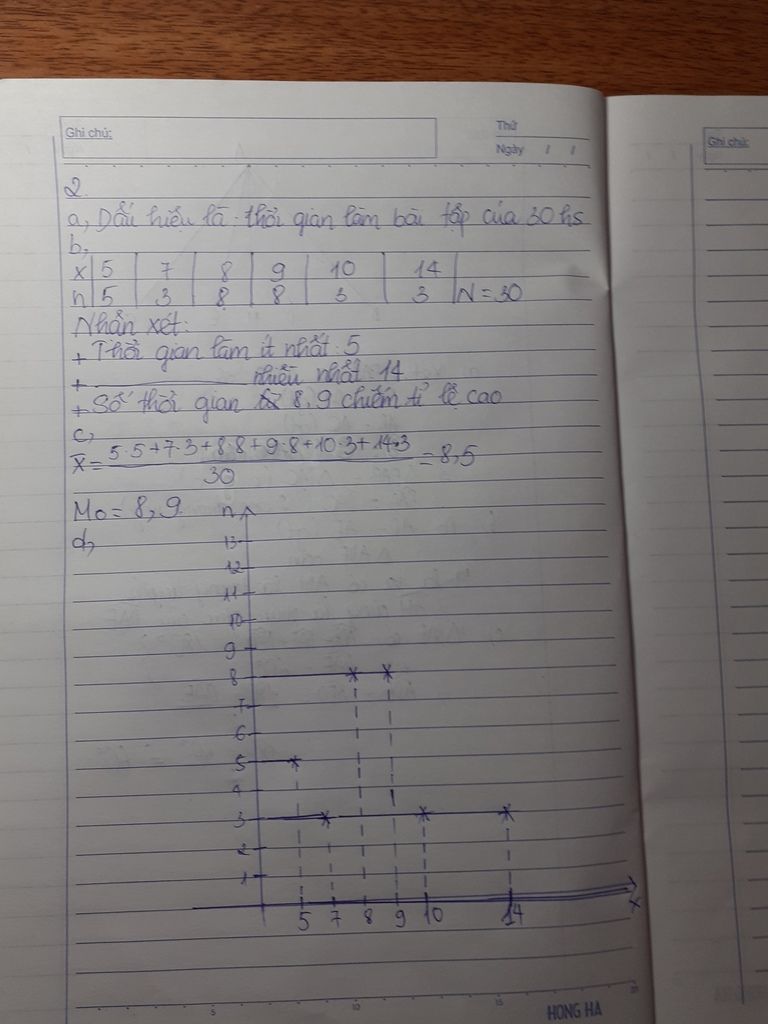 Ghi chú:
Thứ
Ngày / /
Ghi chú:
2.
a, Dấu hiệu là: thời gian làm bài tập của 30 hs
b,
x 5 7 8 9 10 14
n 5 3 8 8 3 3 N = 30
Nhận xét:
+ Thời gian làm ít nhất: 5
+ ________ nhiều nhất: 14
+ Số thời gian 8, 9 chiếm tỉ lệ cao
c,
X̄ = 5·5+7·3+8·8+9·8+10·3+14·3 / 30 = 8,5
Mo = 8, 9
d,
n
13
12
11
10
9
8
7
6
5
4
3
2
1
5 7 8 9 10 14
x
5 10 15
HONG HA